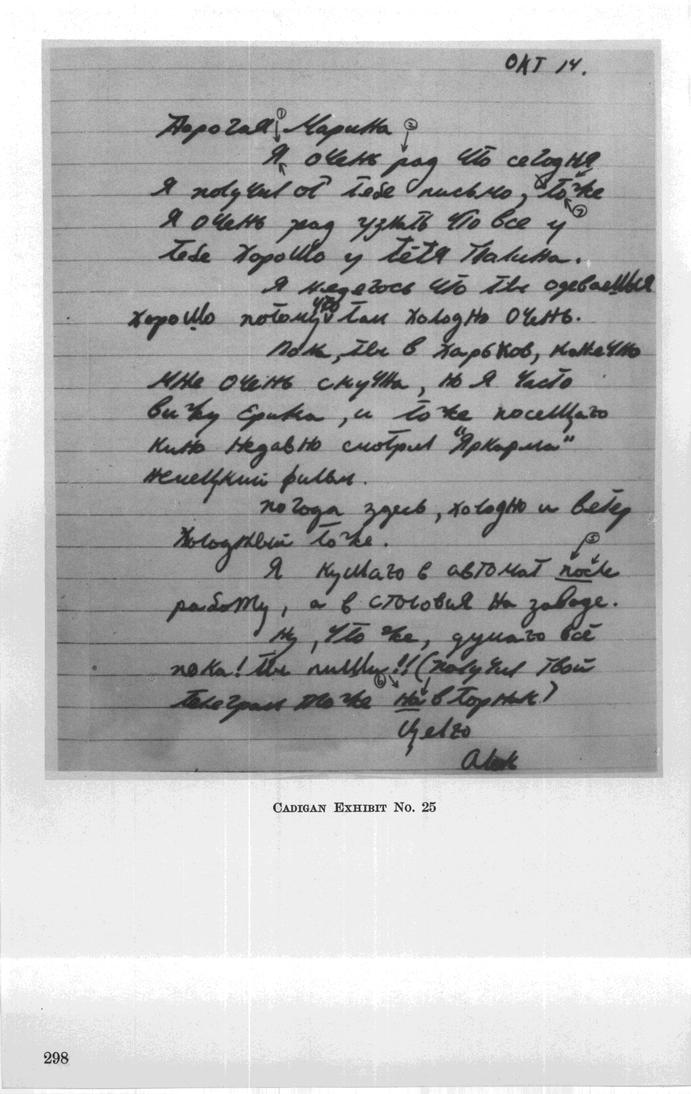 ОКТ 14.
Дорогая Марина
① ②
Я очень рад что сегодня
Я получил от тебе письмо, тоже
⑦
Я очень рад узнать что все у
тебе хорошо у тётя Палина.
Я надеюсь что ты одеваешься
хорошо потому что там холодно очень.
Пока, ты в Харьков, конечно
мне очень скучна, но я часто
вижу Ерика, и тоже посещаю
кино недавно смотрил
немецкий фильм.
погода здесь, холодно и ветер
холодный тоже.
⑤
Я кушаю в автомат после
работу, а в столовыя на заводе.
Ну, что же, думаю всё
пока! ты пиши!! (получил твой
⑥
телеграм тоже на вторник)
Целю
Alek
CADIGAN EXHIBIT No. 25
298